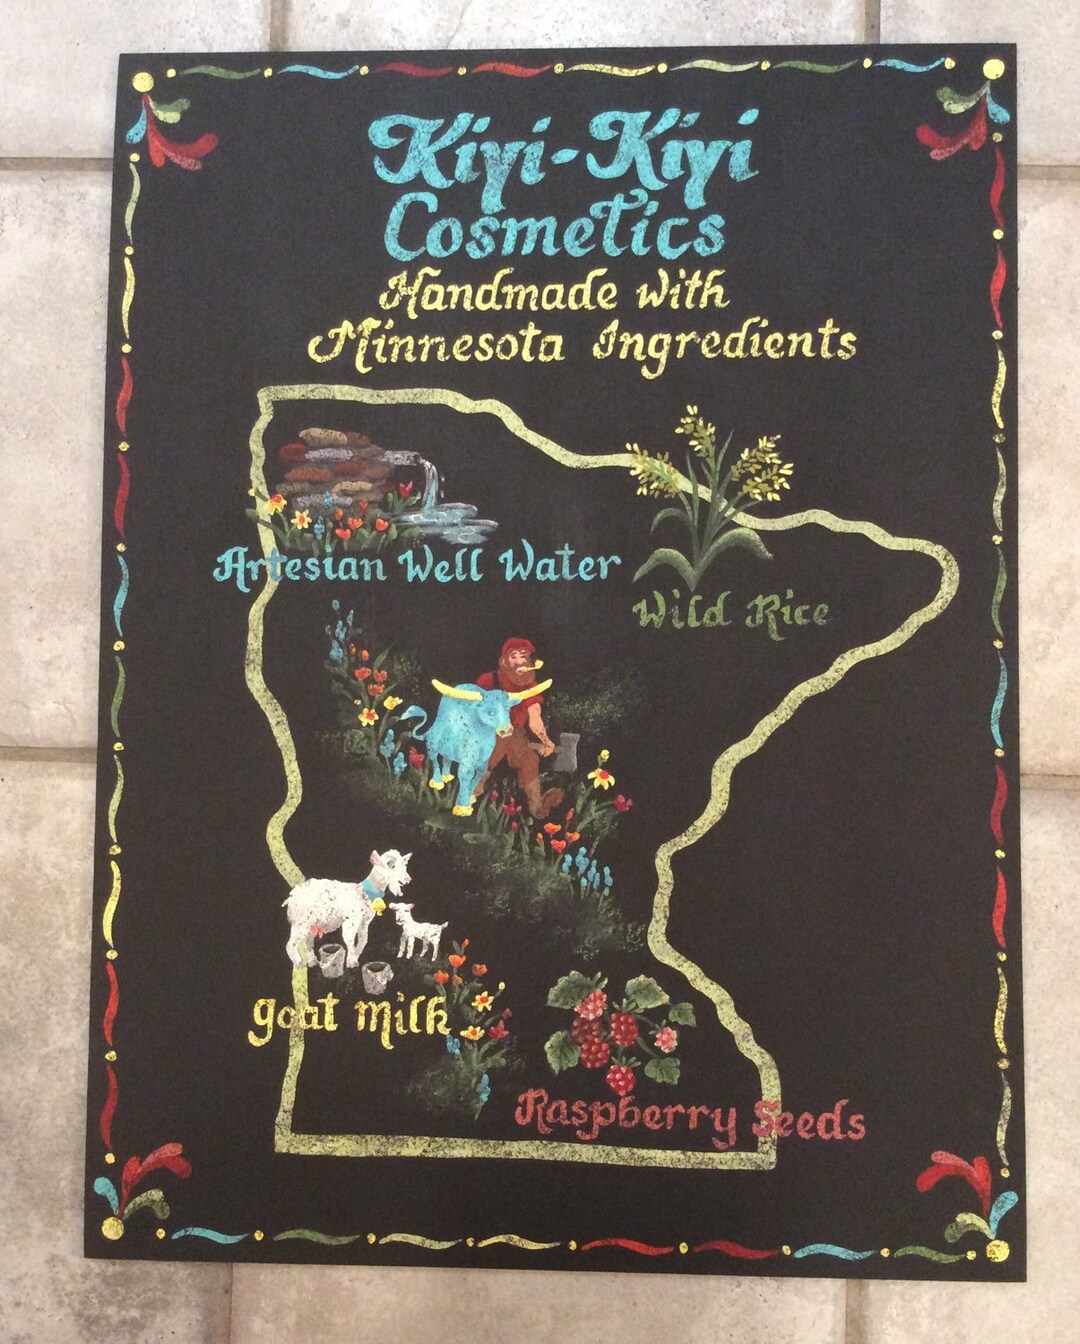 Kiyi-Kiyi
Cosmetics
Handmade with
Minnesota Ingredients
Artesian Well Water
Wild Rice
goat milk
Raspberry Seeds